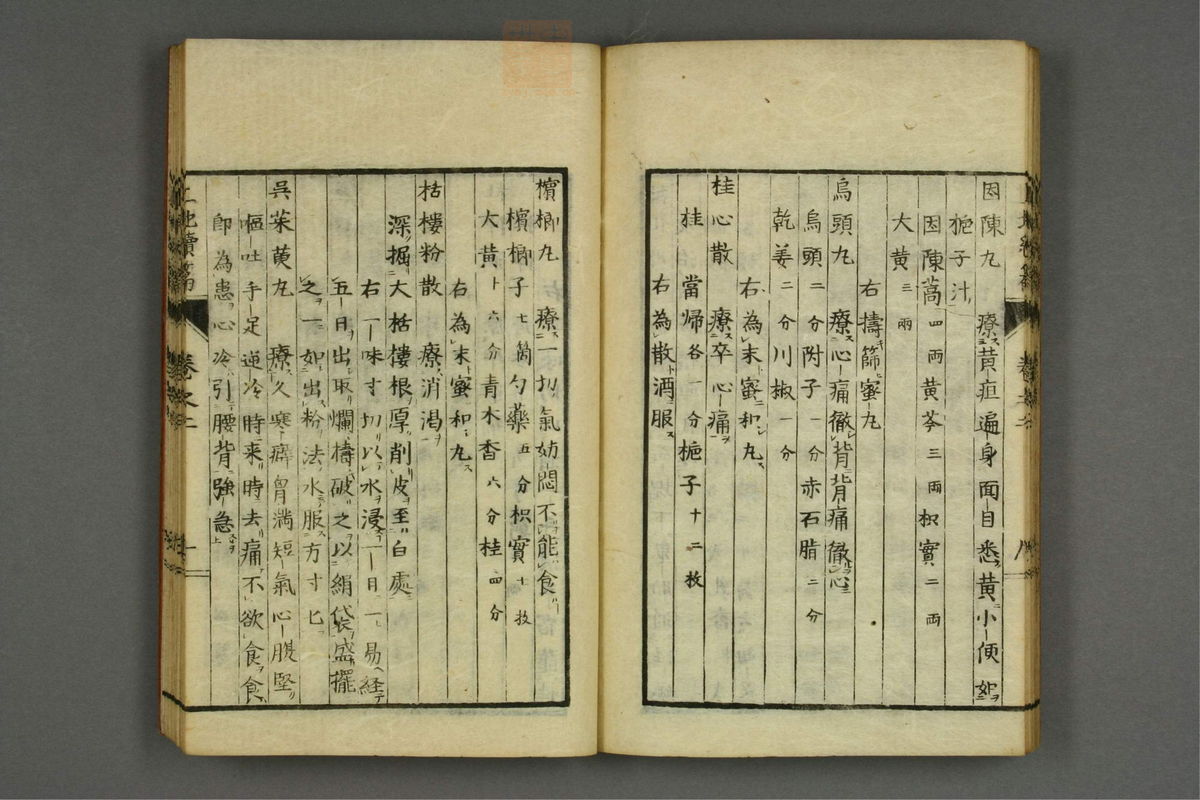 因陳丸 療黄疸遍身面目悉黄小便如
梔子汁
因陳蒿四両黄芩三両枳實二両
大黄三両
右擣篩蜜丸
烏頭丸 療心痛徹背背痛徹心
烏頭二分附子一分赤石脂二分
乾姜二分川椒一分
右為末蜜和丸
桂心散 療卒心痛
桂 當帰各一分梔子十二枚
右為散酒服
檳榔丸 療一切氣妨悶不能食
檳榔子七箇勺藥五分枳實七枚
大黄十六分青木香六分桂四分
右為末蜜和丸
枯樓粉散 療消渇
深掘大枯樓根厚削皮至白處
右一味寸切以水浸一日一易経
五日出取爛擣破之以絹袋盛擺
之一如出粉法水服方寸匕
呉茱萸丸 療久寒癖胷満短氣心腹堅
嘔吐手足逆冷時来時去痛不欲食食
即為患心冷引腰背強急
卷之二